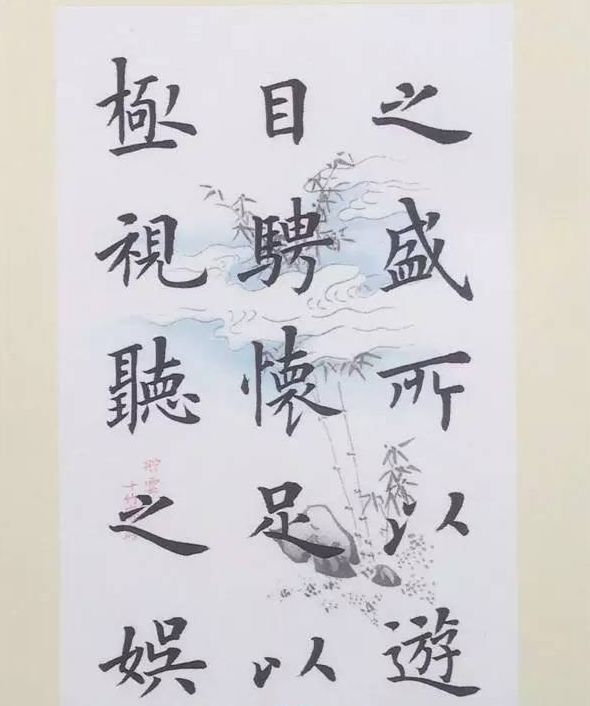 之盛所以遊
目騁懷足以
極視聽之娛